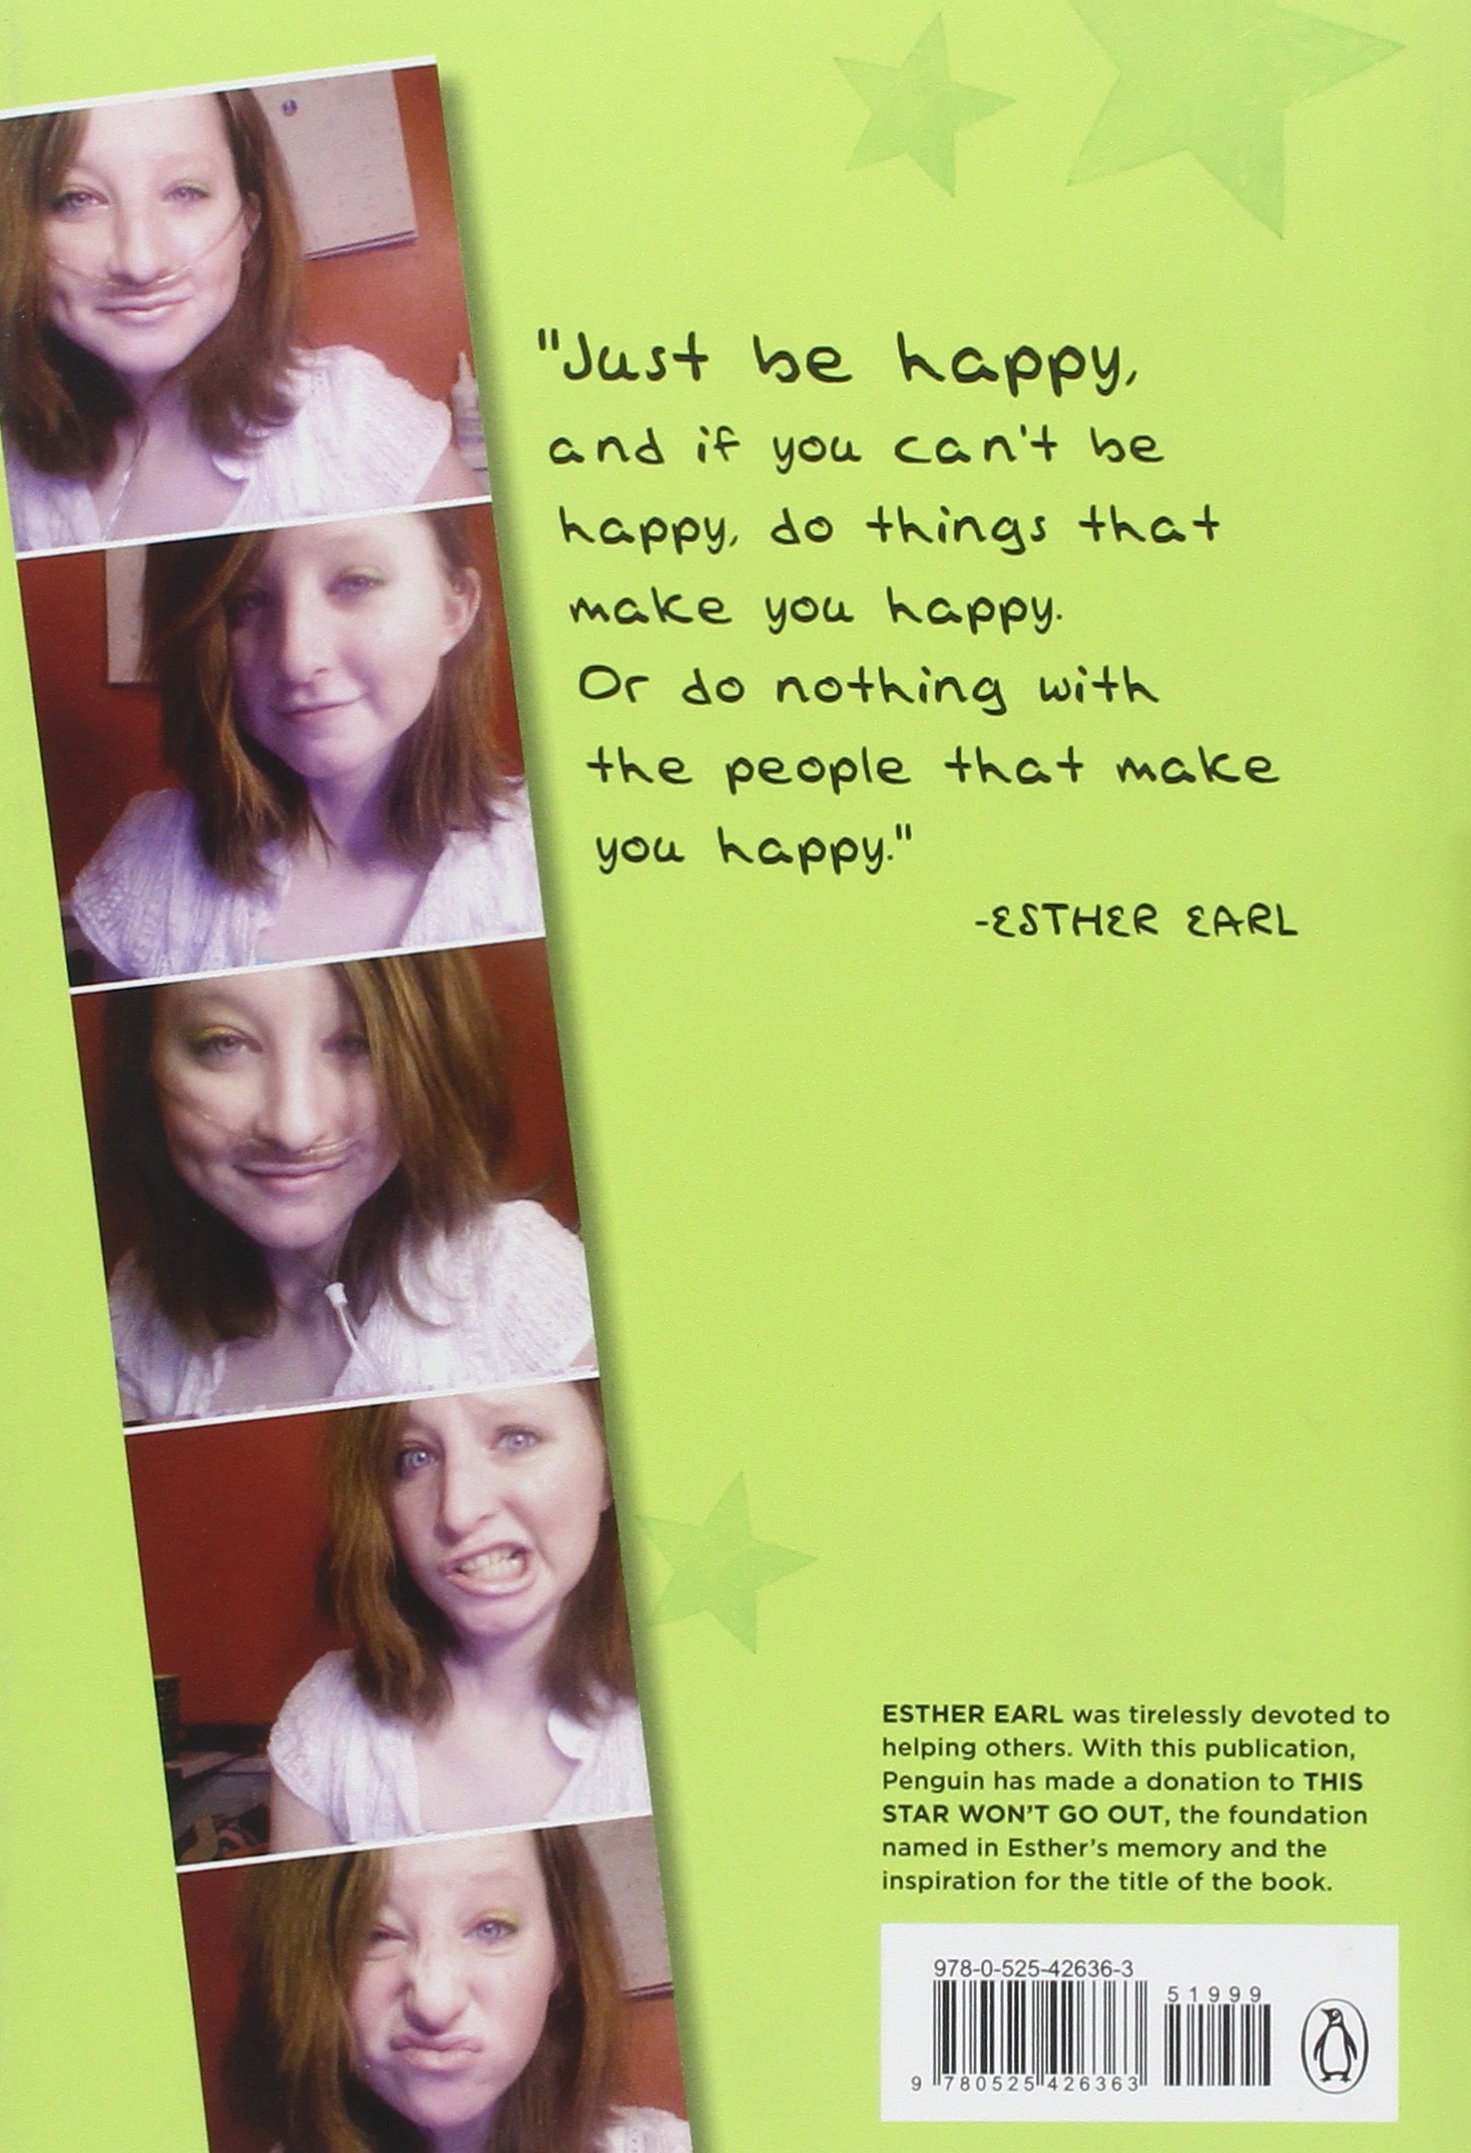 "Just be happy,
and if you can't be
happy, do things that
make you happy.
Or do nothing with
the people that make
you happy."
-ESTHER EARL
ESTHER EARL was tirelessly devoted to
helping others. With this publication,
Penguin has made a donation to THIS
STAR WON'T GO OUT, the foundation
named in Esther's memory and the
inspiration for the title of the book.
978-0-525-42636-3
51999
9 780525 426363